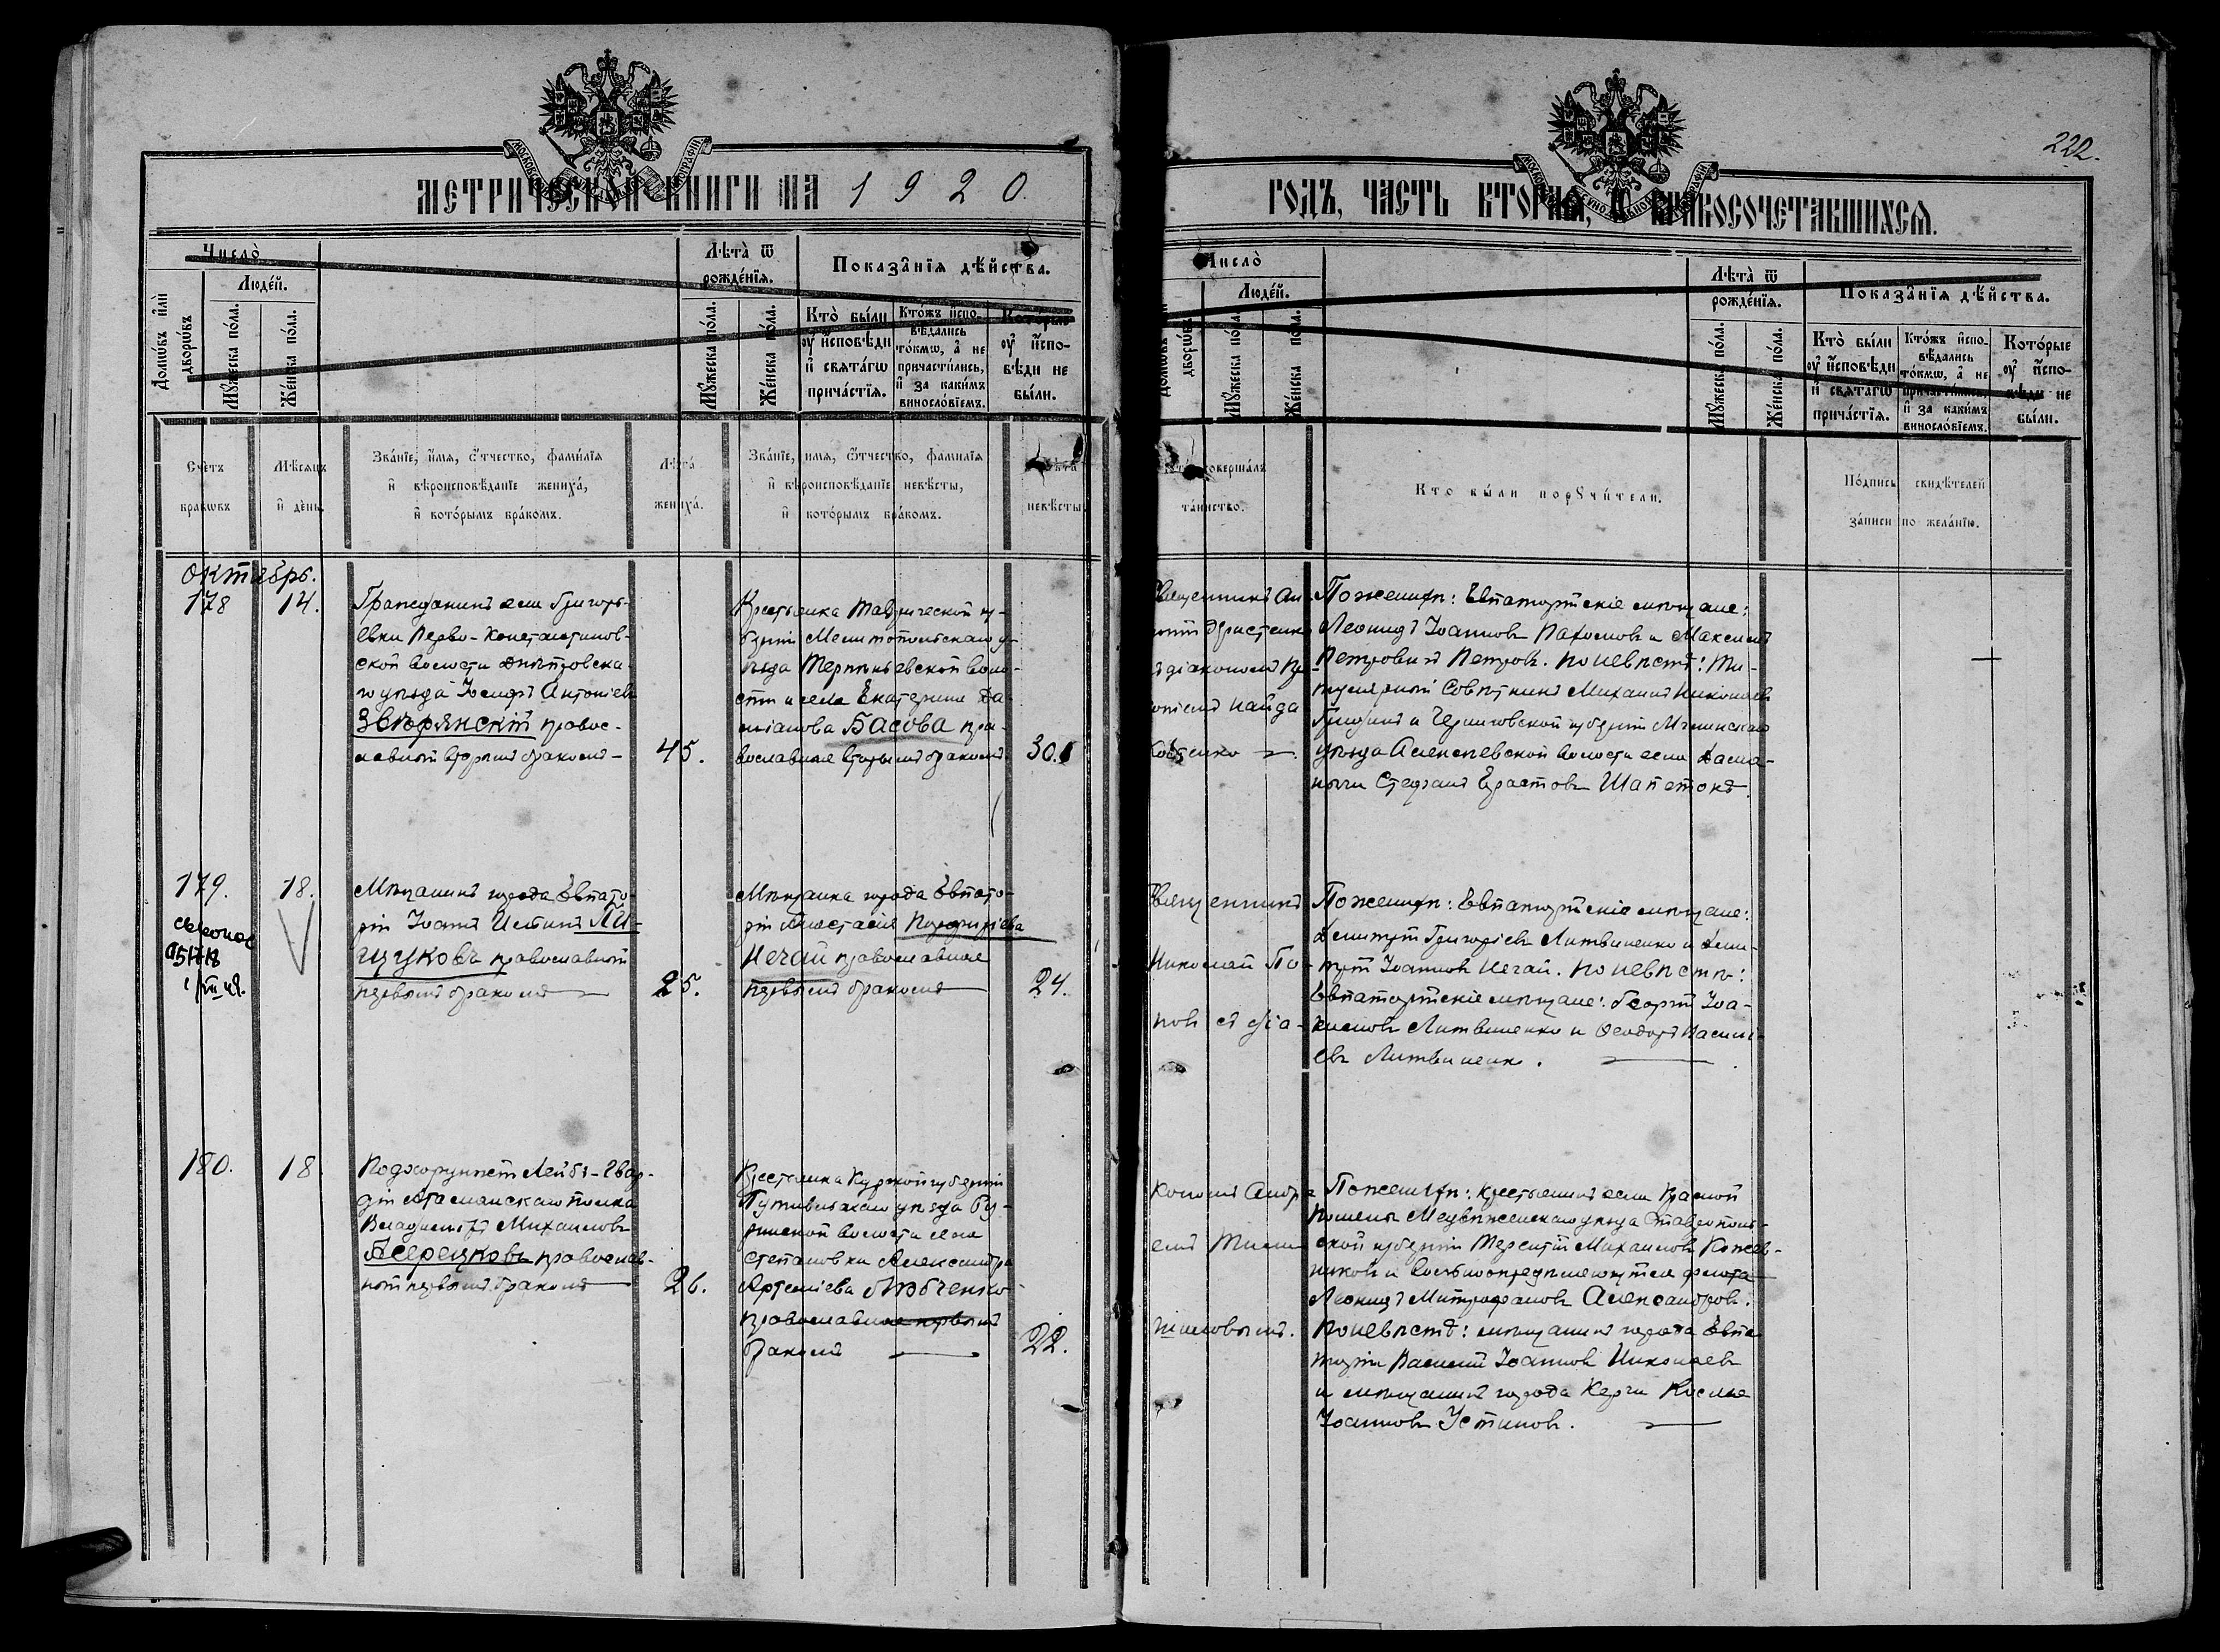 222.
МЕТРИЧЕСКОЙ КНИГИ НА 1920.
ГОДЪ, ЧАСТЬ ВТОРАЯ, О БРАКОСОЧЕТАВШИХСЯ.
Число̀
Людéй.
Домѡвъ и҆лѝ дворѡвъ
Мꙋжеска по́ла.
Же́нска по́ла.
Лѣта̀ ѿ рожде́нїѧ.
Мꙋжеска по́ла.
Же́нска по́ла.
Показа̑нїѧ дѣ́йства.
Кто̀ бы́ли ᲂу҆ и҆сповѣди и҆ свѧта́гѡ прича́стїѧ.
Кто́жъ и҆спо-вѣдались то́кмѡ, а҆ не причасти́лись, и҆ за каки́мъ виносло́вїемъ.
Кото́рые ᲂу҆ и҆спо-вѣди не бы́ли.
Счетъ бракѡвъ
Мѣсѧцъ и҆ де́нь.
Зва́нїе, и҆́мѧ, ѻ҆́тчество, фами́лїѧ и҆ вѣроисповѣданїе жениха̀, и҆ кото́рымъ бра́комъ.
Лѣта̀ жениха̀.
Зва́нїе, и҆́мѧ, ѻ҆́тчество, фами́лїѧ и҆ вѣроисповѣданїе невѣсты, и҆ кото́рымъ бра́комъ.
Лѣта̀ невѣсты.
Кто̀ соверша́лъ та́инство.
Кто бы́ли порꙋчи́тели.
По́дпись свидѣтелей за́писи по жела́нїю.
октябрь.
178
14.
Гражданинъ села Григорь-
евки Перво-Константинов-
ской волости Днѣпровска-
го уѣзда Іосифъ Антоніевъ
Звѣрянскій правос-
лавный вторымъ бракомъ
45.
Крестьянка Таврической гу-
берніи Мелитопольскаго у-
ѣзда Терпѣньевской воло-
сти и села Екатерина Да-
міанова Басова пра-
вославная вторымъ бракомъ
30.
Священникъ
Найда
По женихѣ: Евпаторійскіе мѣщане:
Леонидъ Іоанновъ Пахомовъ и Максимъ
Петровичъ Петровъ. По невѣстѣ: Ти-
тулярный Совѣтникъ Михаилъ Николаевъ
и Черниговской губерніи Мглинскаго
уѣзда Алексѣевской волости села
Стефанъ Ерастовъ Шапетокъ.
179.
18.
Мѣщанинъ города Евпато-
ріи Іоаннъ Пи-
щуковъ православный
первымъ бракомъ
25.
Мѣщанка города Евпато-
ріи Анастасія Порфиріева
Нечай православная
первымъ бракомъ
24.
Священникъ
Николай По-
повъ съ діа-
По женихѣ: Евпаторійскіе мѣщане:
Димитрій Григоріевъ Литвиненко и Дими-
трій Іоанновъ Нечай. По невѣстѣ:
Евпаторійскіе мѣщане: Георгій Іоа-
кимовъ Литвиненко и Ѳеодоръ Василі-
евъ Литвиненко.
180.
18
Подхорунжій Лейбъ-Гвар-
діи Атаманскаго полка
Владиміръ Михаиловъ
Асерецковъ православ-
ный первымъ бракомъ
26.
Крестьянка Курской губерніи
Путивльскаго уѣзда
волости села
Степановки Александра
Артеміева Любченко
православная первымъ
бракомъ
22.
кономъ Андре-
емъ Тими-
шковымъ.
По женихѣ: крестьянинъ села Красной
Поляны Медвѣженскаго уѣзда Ставрополь-
ской губерніи Терентій Михаиловъ Кожев-
никовъ и вольноопредѣляющійся флота
Леонидъ Митрофановъ Александровъ.
По невѣстѣ: мѣщанинъ города Евпа-
торіи Василій Іоанновъ Николаевъ
и мѣщанинъ города Керчи Косма
Іоанновъ Устиновъ.